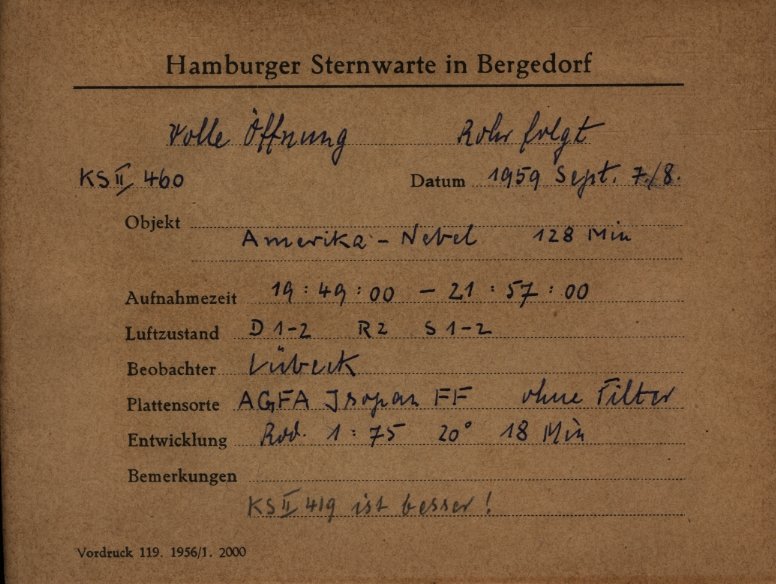 Hamburger Sternwarte in Bergedorf
Volle Öffnung Rohr folgt
KS II 460 Datum 1959 Sept. 7./8.
Objekt
Amerika - Nebel 128 Min
Aufnahmezeit 19 : 49 : 00 - 21 : 57 : 00
Luftzustand D 1-2 R 2 S 1-2
Beobachter Lübeck
Plattensorte AGFA Isopan FF ohne Filter
Entwicklung Rod. 1 : 75 20° 18 Min
Bemerkungen
KS II 419 ist besser!
Vordruck 119. 1956/1. 2000